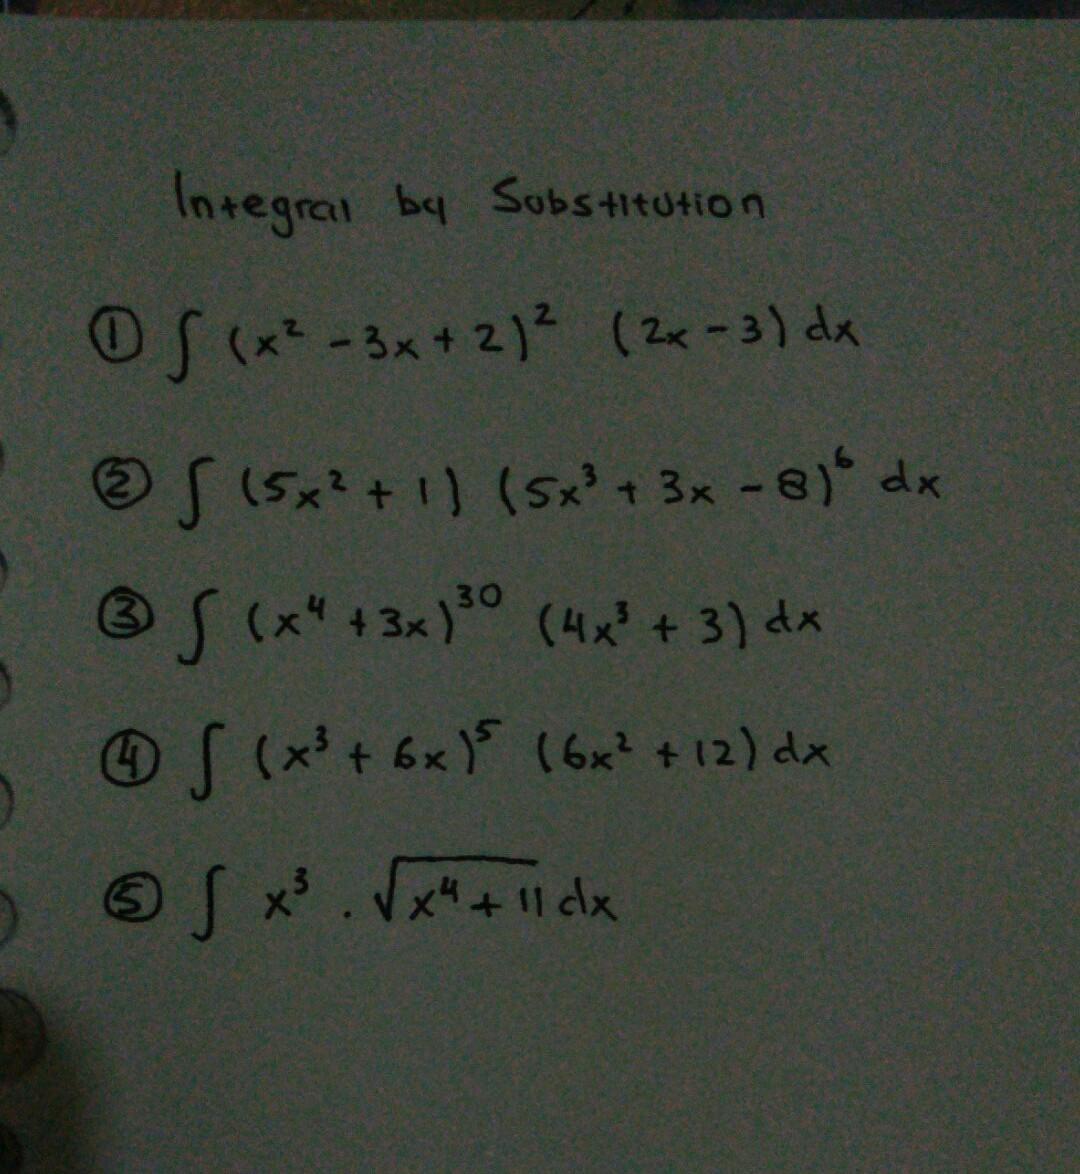 Integral by Substitution
① ∫ (x² - 3x + 2)² (2x - 3) dx
② ∫ (5x² + 1) (5x³ + 3x - 8)⁶ dx
③ ∫ (x⁴ + 3x)³⁰ (4x³ + 3) dx
④ ∫ (x³ + 6x)⁵ (6x² + 12) dx
⑤ ∫ x³ . √(x⁴ + 11) dx